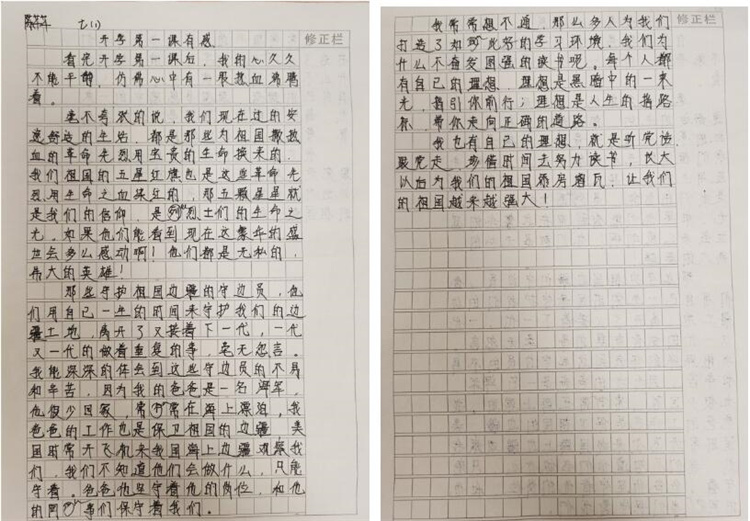 七(1)
修正栏
开学第一课有感
看完开学第一课后，我的心久久
不能平静，仿佛心中有一股热血沸腾
着。
毫不夸张的说，我们现在过的安
逸舒适的生活，都是那些为祖国撒热
血的革命先烈用宝贵的生命换来的，
我们祖国的五星红旗也是这些革命先
烈用生命之血染红的，那五颗星星就
是我们的信仰，是烈士们的生命之
光，如果他们能看到现在这繁华的盛
世会多么感动啊！他们都是无私的，
伟大的英雄！
那些守护祖国边疆的守边员，他
们用自己一生的时间来守护我们的边
疆土地，离开了又接着下一代，一代
又一代的做着重复的事，毫无怨言。
我能深深的体会到这些守边员的不易
和辛苦，因为我的爸爸是一名海军，
他很少回家，常常在海上漂泊，我
爸爸的工作也是保卫祖国的边疆，美
国时常开飞机来我国海上边疆观察我
们，我们不知道他们会做什么，只能
守着。爸爸他坚守着他的岗位，和他
的同事们保守着我们。
修正栏
我常常想不通，那么多人为我们
打造了如此好的学习环境，我们为
什么不奋发图强的读书呢。每个人都
有自己的理想，理想是黑暗中的一束
光，指引你前行；理想是人生的指路
标，带你走向正确的道路。
我也有自己的理想，就是听党话，
跟党走，珍惜时间去努力读书，长大
以后为我们的祖国添房添瓦，让我们
的祖国越来越强大！